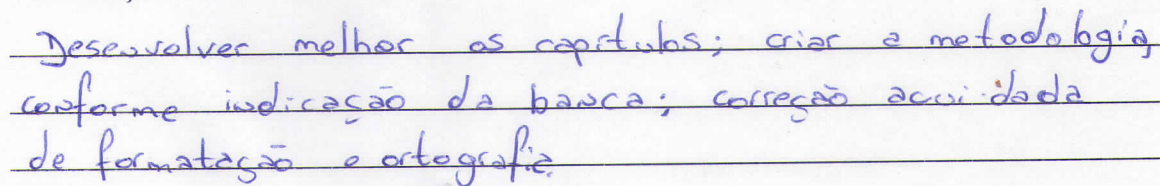 Desenvolver melhor os capítulos; criar a metodologia,
conforme indicação da banca; correção acuidada
de formatação e ortografia.